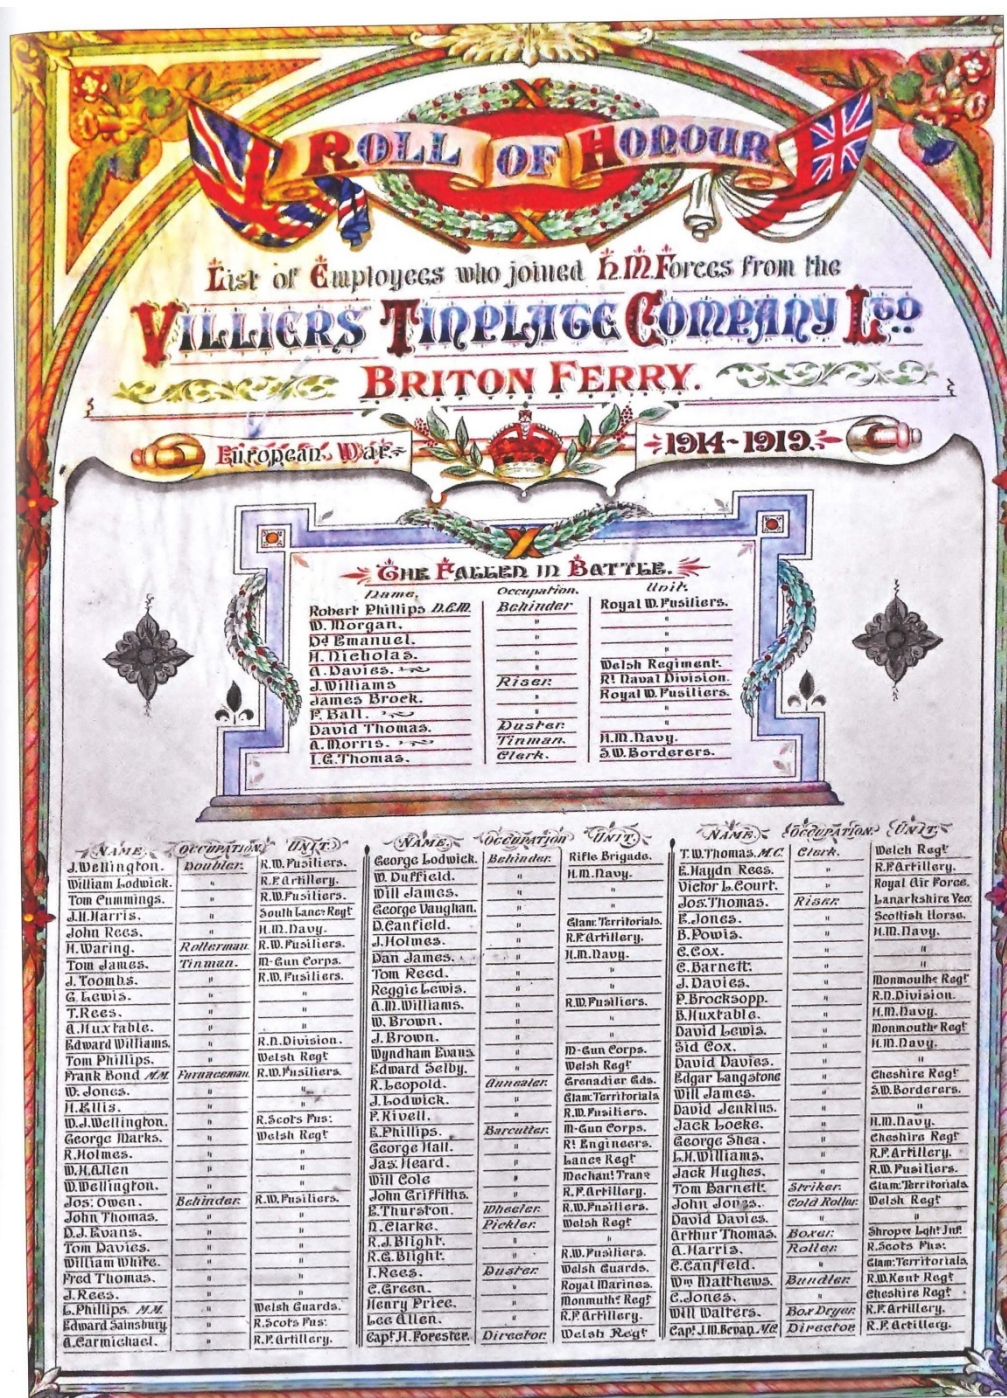 ROLL OF HONOUR.
List of Employees who joined H.M.Forces from the
VILLIERS TINPLATE COMPANY LTD.
BRITON FERRY.
European War 1914-1919.
THE FALLEN IN BATTLE.
Name. Occupation. Unit.
Robert Phillips D.C.M. Behinder Royal W.Fusiliers.
W.Morgan. " "
Dd Emanuel. " "
H.Nicholas. " "
A.Davies. " Welsh Regiment.
J.Williams Riser. Rl Naval Division.
James Brock. " Royal W.Fusiliers.
F.Ball. " "
David Thomas. Duster. "
A.Morris. Tinman. H.M.Navy.
I.G.Thomas. Clerk. S.W.Borderers.
NAME. OCCUPATION. UNIT.
J.Wellington. Doubler. R.W.Fusiliers.
William Lodwick. " R.F.Artillery.
Tom Cummings. " R.W.Fusiliers.
J.H.Harris. " South Lancs Regt
John Rees. " H.M.Navy.
H.Waring. Rollerman. R.W.Fusiliers.
Tom James. Tinman. M-Gun Corps.
J.Toombs. " R.W.Fusiliers.
G.Lewis. " "
T.Rees. " "
A.Huxtable. " "
Edward Williams. " R.N.Division.
Tom Phillips. " Welsh Regt
Frank Bond M.M. Furnaceman. R.W.Fusiliers.
W.Jones. " "
H.Ellis. " "
W.J.Wellington. " R.Scots Fus:
George Marks. " Welsh Regt
R.Holmes. " "
W.H.Allen " "
W.Wellington. " "
Jos: Owen. Behinder. R.W.Fusiliers.
John Thomas. " "
D.J.Evans. " "
Tom Davies. " "
William White. " "
Fred Thomas. " "
J.Rees. " "
L.Phillips. M.M. " Welsh Guards.
Edward Sainsbury " R.Scots Fus:
A.Carmichael. " R.F.Artillery.
NAME. OCCUPATION UNIT.
George Lodwick. Behinder. Rifle Brigade.
W.Duffield. " H.M.Navy.
Will James. " "
George Vaughan. " "
D.Canfield. " Glam:Territorials.
J.Holmes. " R.F.Artillery.
Dan James. " H.M.Navy.
Tom Reed. " "
Reggie Lewis. " "
A.M.Williams. " R.W.Fusiliers.
W.Brown. " "
J.Brown. " "
Wyndham Evans " M-Gun Corps.
Edward Selby. " Welsh Regt
R.Leopold. Annealer. Grenadier Gds.
J.Lodwick. " Glam:Territorials
F.Kivell. " R.W.Fusiliers.
E.Phillips. Barcutter. M-Gun Corps.
George Hall. " Rl Engineers.
Jas: Heard. " Lancs Regt
Will Cole " Mechanl Trans
John Griffiths. " R.F.Artillery.
E.Thurston. Wheeler. R.W.Fusiliers.
N.Clarke. Pickler. Welsh Regt
R.J.Blight. " "
R.G.Blight. " R.W.Fusiliers.
I.Rees. Duster. Welsh Guards.
C.Green. " Royal Marines.
Henry Price. " Monmouths Regt
Lee Allen. " R.F.Artillery.
Capt H.Forester. Director. Welsh Regt
NAME. OCCUPATION. UNIT.
T.W.Thomas. M.C. Clerk. Welch Regt
E.Haydn Rees. " R.F.Artillery.
Victor L.Court. " Royal Air Force.
Jos:Thomas. Riser. Lanarkshire Yeo:
E.Jones. " Scottish Horse.
B.Powis. " H.M.Navy.
C.Cox. " "
C.Barnett. " "
J.Davies. " Monmouths Regt
P.Brocksopp. " R.N.Division.
B.Huxtable. " H.M.Navy.
David Lewis. " Monmouths Regt
Sid Cox. " H.M.Navy.
David Davies. " "
Edgar Langstone " Cheshire Regt
Will James. " S.W.Borderers.
David Jenkins. " "
Jack Locke. " H.M.Navy.
George Shea. " Cheshire Regt
L.H.Williams. " R.F.Artillery.
Jack Hughes. " R.W.Fusiliers.
Tom Barnett. Striker. Glam:Territorials
John Jones. Cold Roller. Welsh Regt
David Davies. " "
Arthur Thomas. Boxer. Shrops Lght Inf.
A.Harris. Roller. R.Scots Fus:
C.Canfield. " Glam:Territorials
Wm Matthews. Bundler. R.W.Kent Regt
C.Jones. " Cheshire Regt
Will Walters. Box Dryer. R.F.Artillery.
Capt J.M.Bevan. M.C Director. R.F.Artillery.